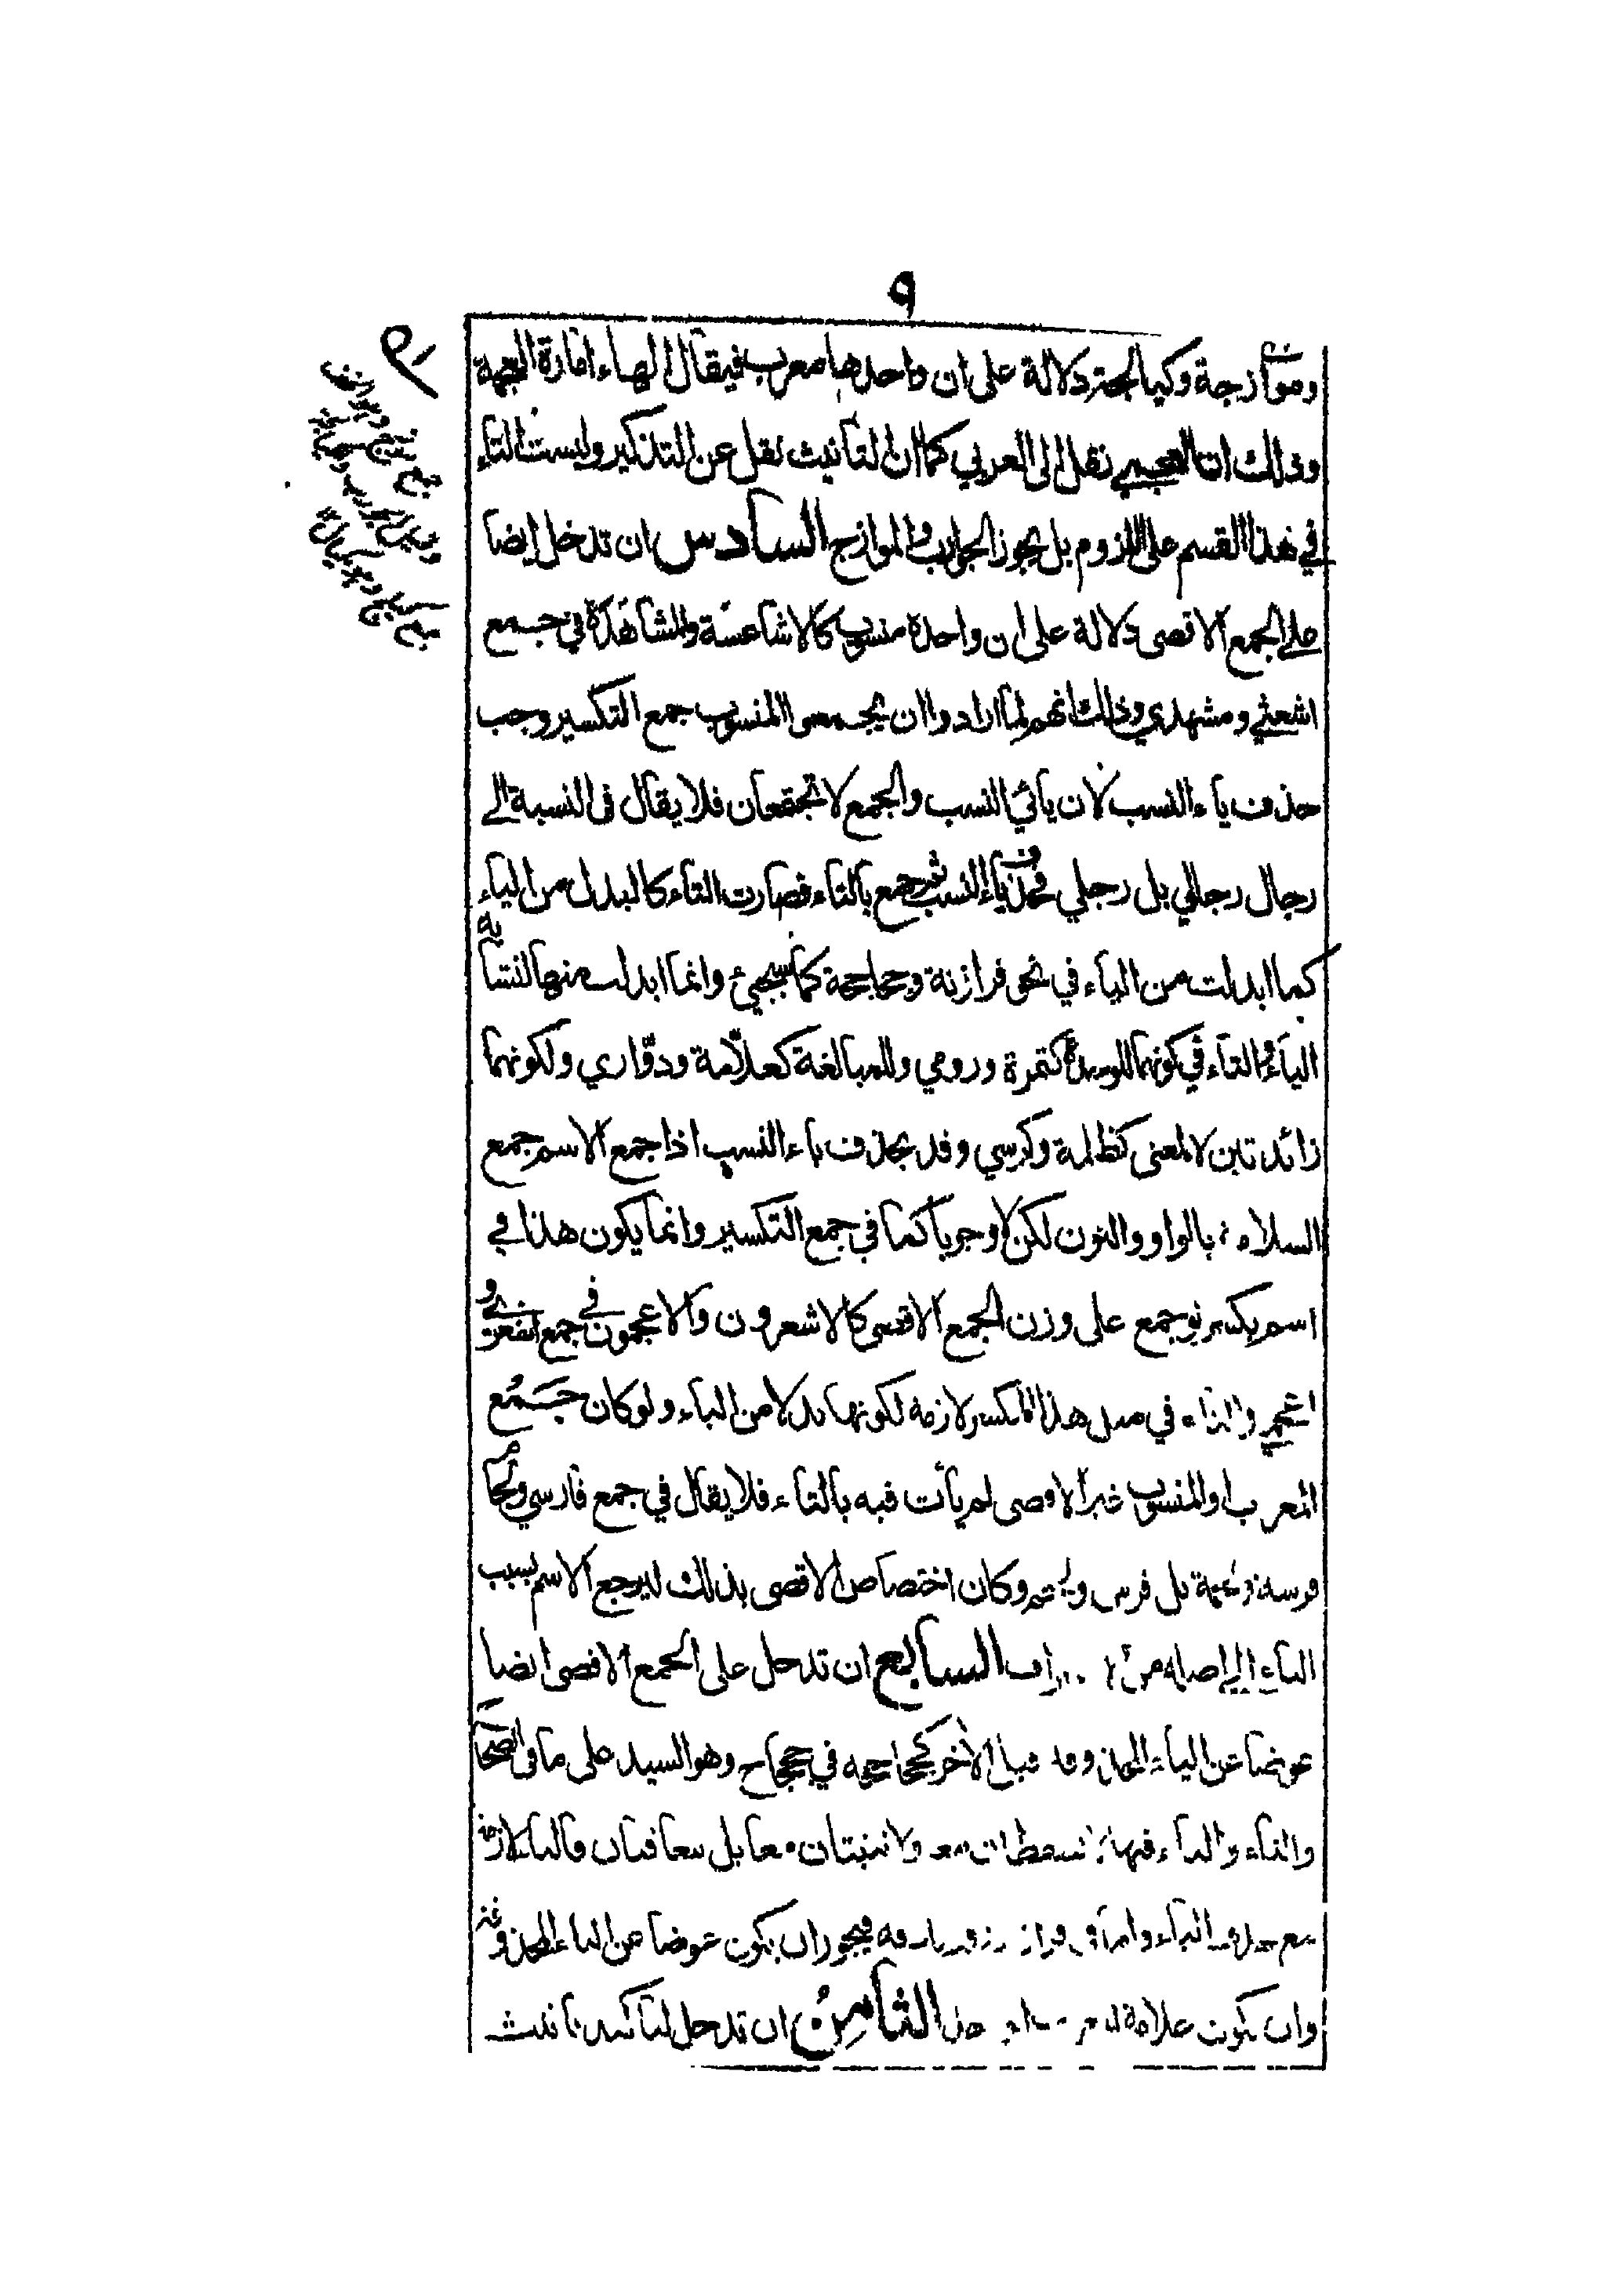 ٩
وموازجة وكيالجة دلالة على ان واحدها معرب فيقال الهاء امارة العجمة
وذلك ان العجمي نقل الى العربي كما ان التانيث نقل عن التذكير وليست التاء
في هذا القسم على اللزوم بل يجوز الجوارب والموازج السادس ان تدخل ايضا
على الجمع الاقصى دلالة على ان واحده منسوب كالاشاعثة والمشاهدة في جمع
اشعثي ومشهدي وذلك انهم لما ارادوا ان يجمعوا المنسوب جمع التكسير وجب
حذف ياء النسب لان يائي النسب والجمع لا تجتمعان فلا يقال في النسبة الى
رجال رجالي بل رجلي فحذف ياء النسب ثم جمع بالتاء فصارت التاء كالبدل من الياء
كما ابدلت من الياء في نحو فرازنة وجحاجحة كما سيجيئ وانما ابدلت منها لتشابه
الياء والتاء في كونهما للوحدة كتمرة ورومي وللمبالغة كعلامة ودواري ولكونهما
زائدتين لا لمعنى كظلمة وكرسي وقد يحذف ياء النسب اذا جمع الاسم جمع
السلامة بالواو والنون لكن لا وجوبا كما في جمع التكسير وانما يكون هذا في
اسم يكسر لو جمع على وزن الجمع الاقصى كالاشعرون والاعجمون في جمع اشعري و
اعجمي والتاء في مثل هذا المكسر لازمة لكونها بدلا من الياء ولو كان جمع
المعرب او المنسوب غير الاقصى لم يأت فيه بالتاء فلا يقال في جمع فارسي ولجام
فرسة ولجمة بل فرس ولجم وكان اختصاص الاقصى بذلك ليرجع الاسم بسبب
التاء الى اصله من السابع ان تدخل على الجمع الاقصى ايضا
عوضا عن الياء المحذوفة قبل الآخر كجحاجحة في جحجاح وهو السيد على ما في الصحاح
والتاء والياء ولا تثبتان معا بل تتعاقبان فالتاء لازمة
مع حذف الياء واما فيجوز ان يكون عوضا من الياء المحذوفة
وان يكون علامة الثامن ان تدخل لتأكيد تأنيث